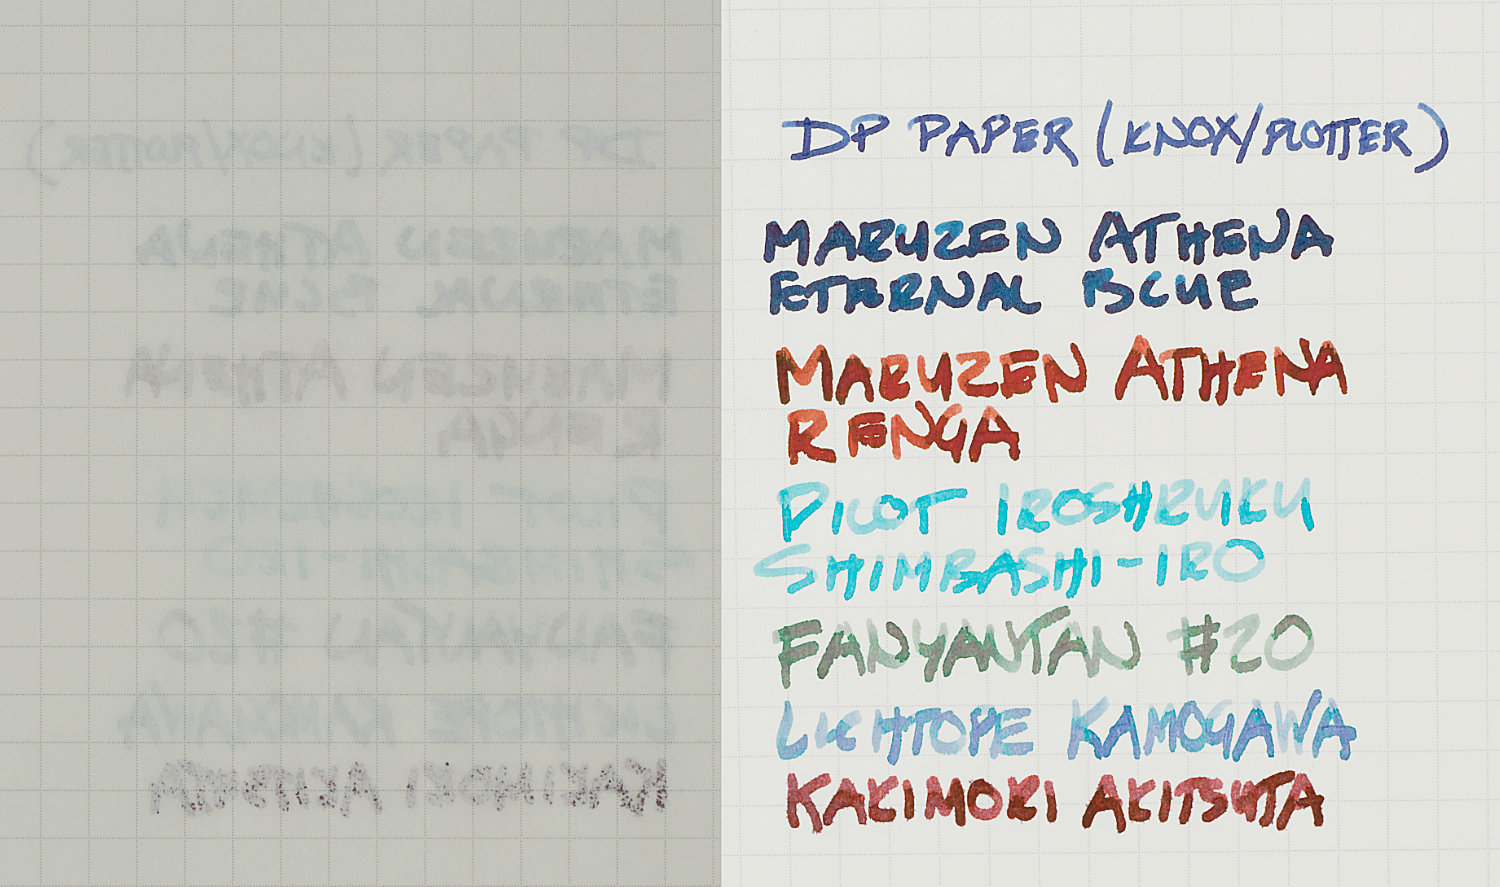 DP PAPER (KNOX/PLOTTER)
MARUZEN ATHENA
ETERNAL BLUE
MARUZEN ATHENA
RENGA
PILOT IROSHIZUKU
SHIMBASHI-IRO
FANYANTAN #20
LICHTOPE KAMOGAWA
KAKIMORI AKITSUTA